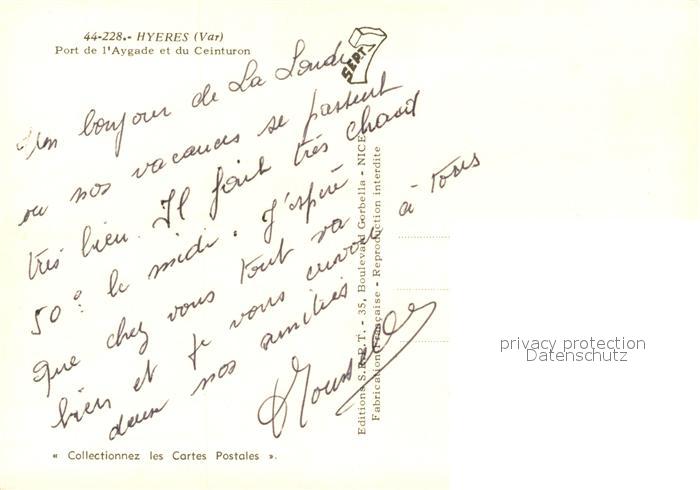 44-228.- HYERES (Var)
Port de l'Aygade et du Ceinturon
SERT
bonjour de La Londe
ou nos vacances se passent
très bien. Il fait très chaud
50° le midi. J'espère
que chez vous tout va
bien et je vous envoie à tous
deux nos amitiés
Editions S.E.R.T. - 35, Boulevard Gorbella - NICE
Fabrication Française - Reproduction interdite
privacy protection
Datenschutz
« Collectionnez les Cartes Postales ».